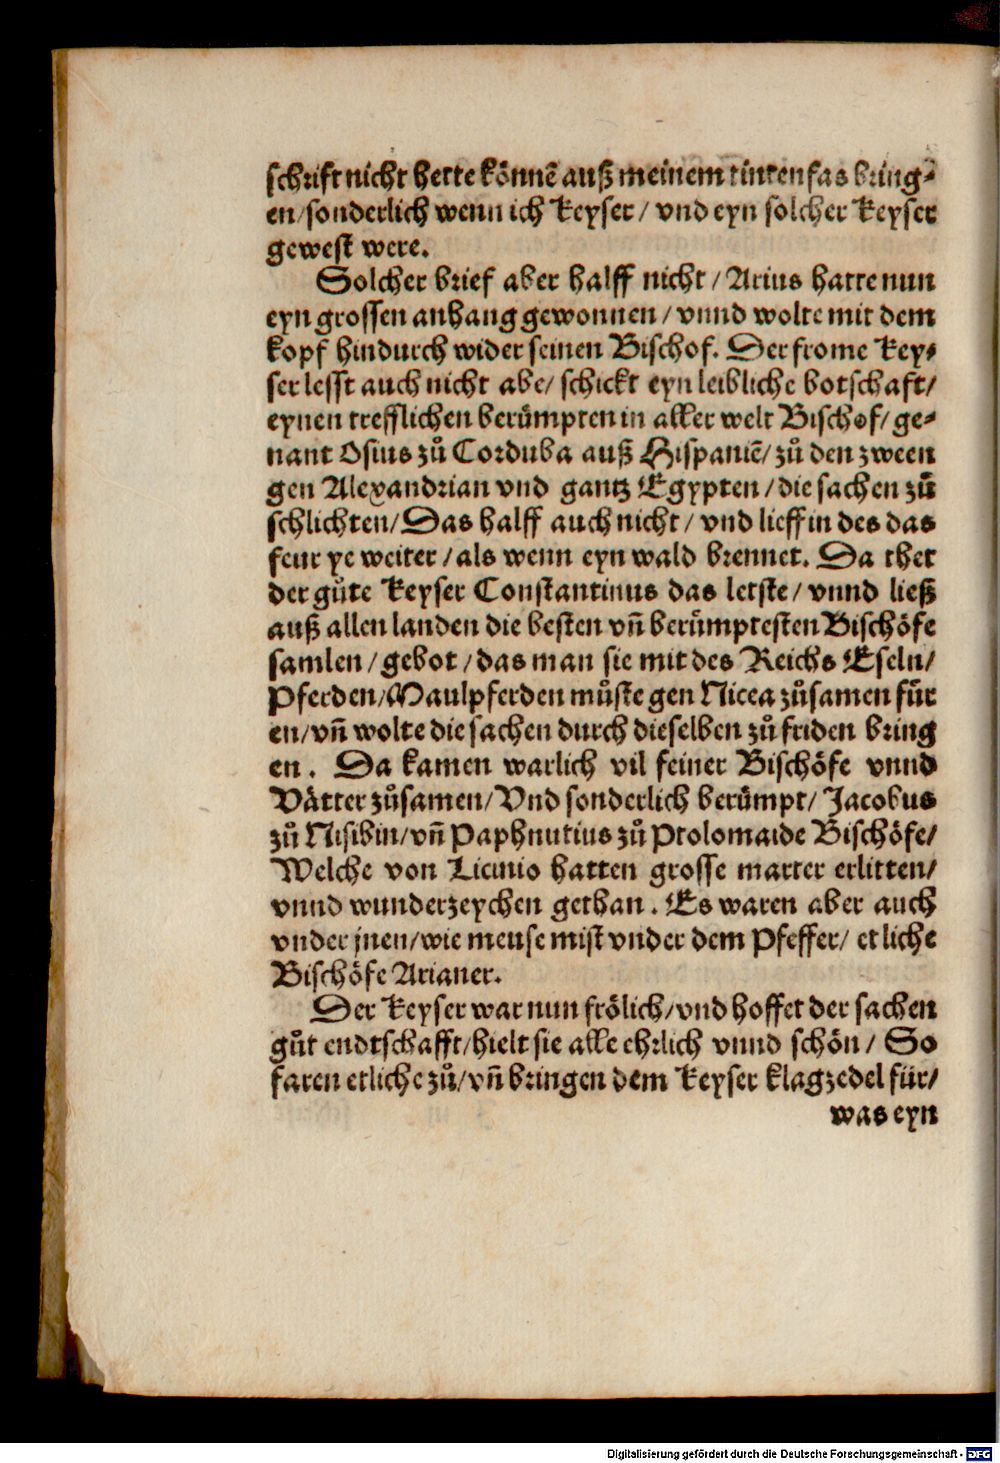 schrift nicht hette könnẽ auß meinem tintenfas bring⸗
en/sonderlich wenn ich Keyser/ vnd eyn solcher Keyser
gewest were.
Solcher brief aber halff nicht/ Arius hatte nun
eyn grossen anhang gewonnen/ vnnd wolte mit dem
kopf hindurch wider seinen Bischof. Der frome Key⸗
ser lesst auch nicht abe/ schickt eyn leibliche botschaft/
eynen trefflichen berümpten in aller welt Bischof/ ge⸗
nant Osius zů Corduba auß Hispaniẽ/ zů den zween
gen Alexandrian vnd gantz Egypten/ die sachen zů
schlichten/ Das halff auch nicht/ vnd lieff in des das
feur ye weiter/ als wenn eyn wald brennet. Da thet
der gůte Keyser Constantinus das letste/ vnnd ließ
auß allen landen die besten vñ berümptesten Bischöfe
samlen/ gebot/ das man sie mit des Reichs Eseln/
Pferden/ Maulpferden můste gen Nicea zůsamen für
en/ vñ wolte die sachen durch dieselben zů friden bring
en. Da kamen warlich vil feiner Bischöfe vnnd
Vätter zůsamen/ Vnd sonderlich berümpt/ Jacobus
zů Nisibin/ vñ Paphnutius zů Ptolomaide Bischöfe/
Welche von Licinio hatten grosse marter erlitten/
vnnd wunderzeychen gethan. Es waren aber auch
vnder jnen/ wie meuse mist vnder dem Pfeffer/ etliche
Bischöfe Arianer.
Der Keyser war nun frölich/ vnd hoffet der sachen
gůt endtschafft/ hielt sie alle ehrlich vnnd schön/ So
faren etliche zů/ vñ bringen dem Keyser klagzedel für/
was eyn
Digitalisierung gefördert durch die Deutsche Forschungsgemeinschaft - DFG